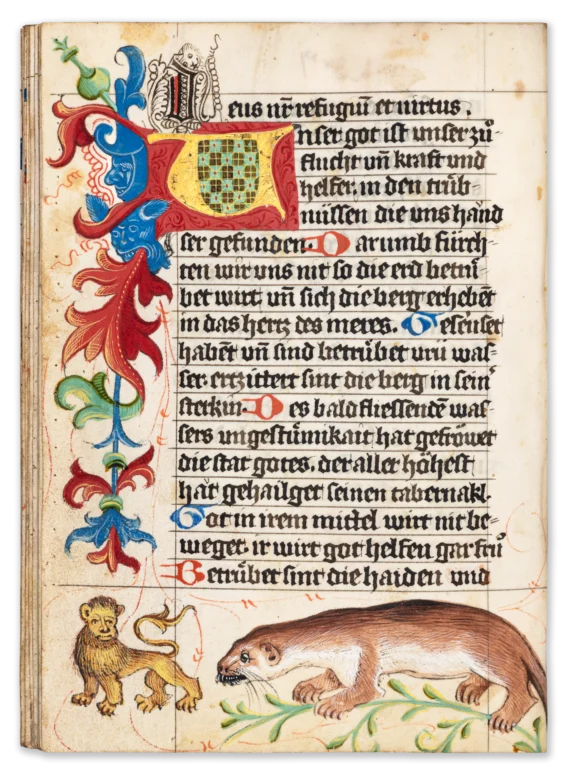 Deus nr̄ refugiū et uirtus.
Unser got ist vnser zů-
flucht vn̄ kraft vnd
helfer. in den trüb-
nüssen die vns hand
ser gefunden. Darumb fürch-
ten wir vns nit so die erd betrü
bet wirt vn̄ sich die berg erhebēt
in das hertz des meres. Gesēuset
habēt vn̄ sind betrübet vnd was-
ser. ertzittert sint die berg in sein
sterkin. Des bald fliessendē was-
sers ungestümikait hat gefröwet
die stat gotes. der aller höhest
hat gehailget seinen tabernakl.
Got in irem mittel wirt nit be-
weget. ir wirt got helfen gar frü
Betrübet sint die haiden vnd